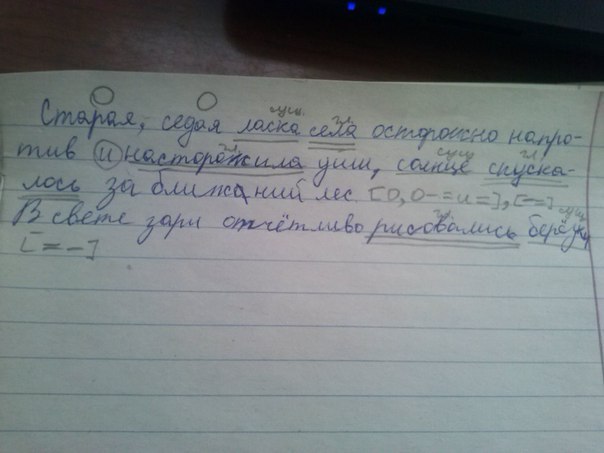 Старая, седая ласка села осторожно напро-
тив и насторожила уши, солнце спуска-
лось за ближний лес [О, О - = и =], [- =]
В свете зари отчётливо рисовались берёзки
[= -]